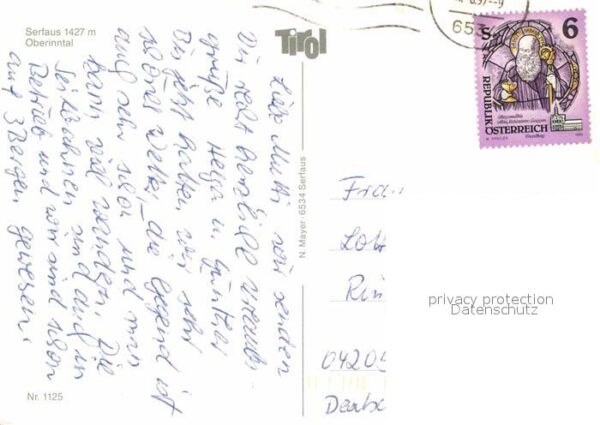 Serfaus 1427 m
Oberinntal
Tirol
Liebe Mutti, wir senden
Dir recht herzliche Urlaubs
grüße Helga u. Günther
Bis jetzt haben wir sehr
schönes Wetter, die Gegend ist
auch sehr schön und man
kann viel wandern. Die
Seilbahnen sind auch in
Betrieb und wir sind schon
auf 3 Bergen gewesen.
Nr. 1125
N. Mayer · 6534 Serfaus
6.97
653
S 6
REPUBLIK
ÖSTERREICH
Frau
Lot
Rin
04205
Deutsc
privacy protection
Datenschutz